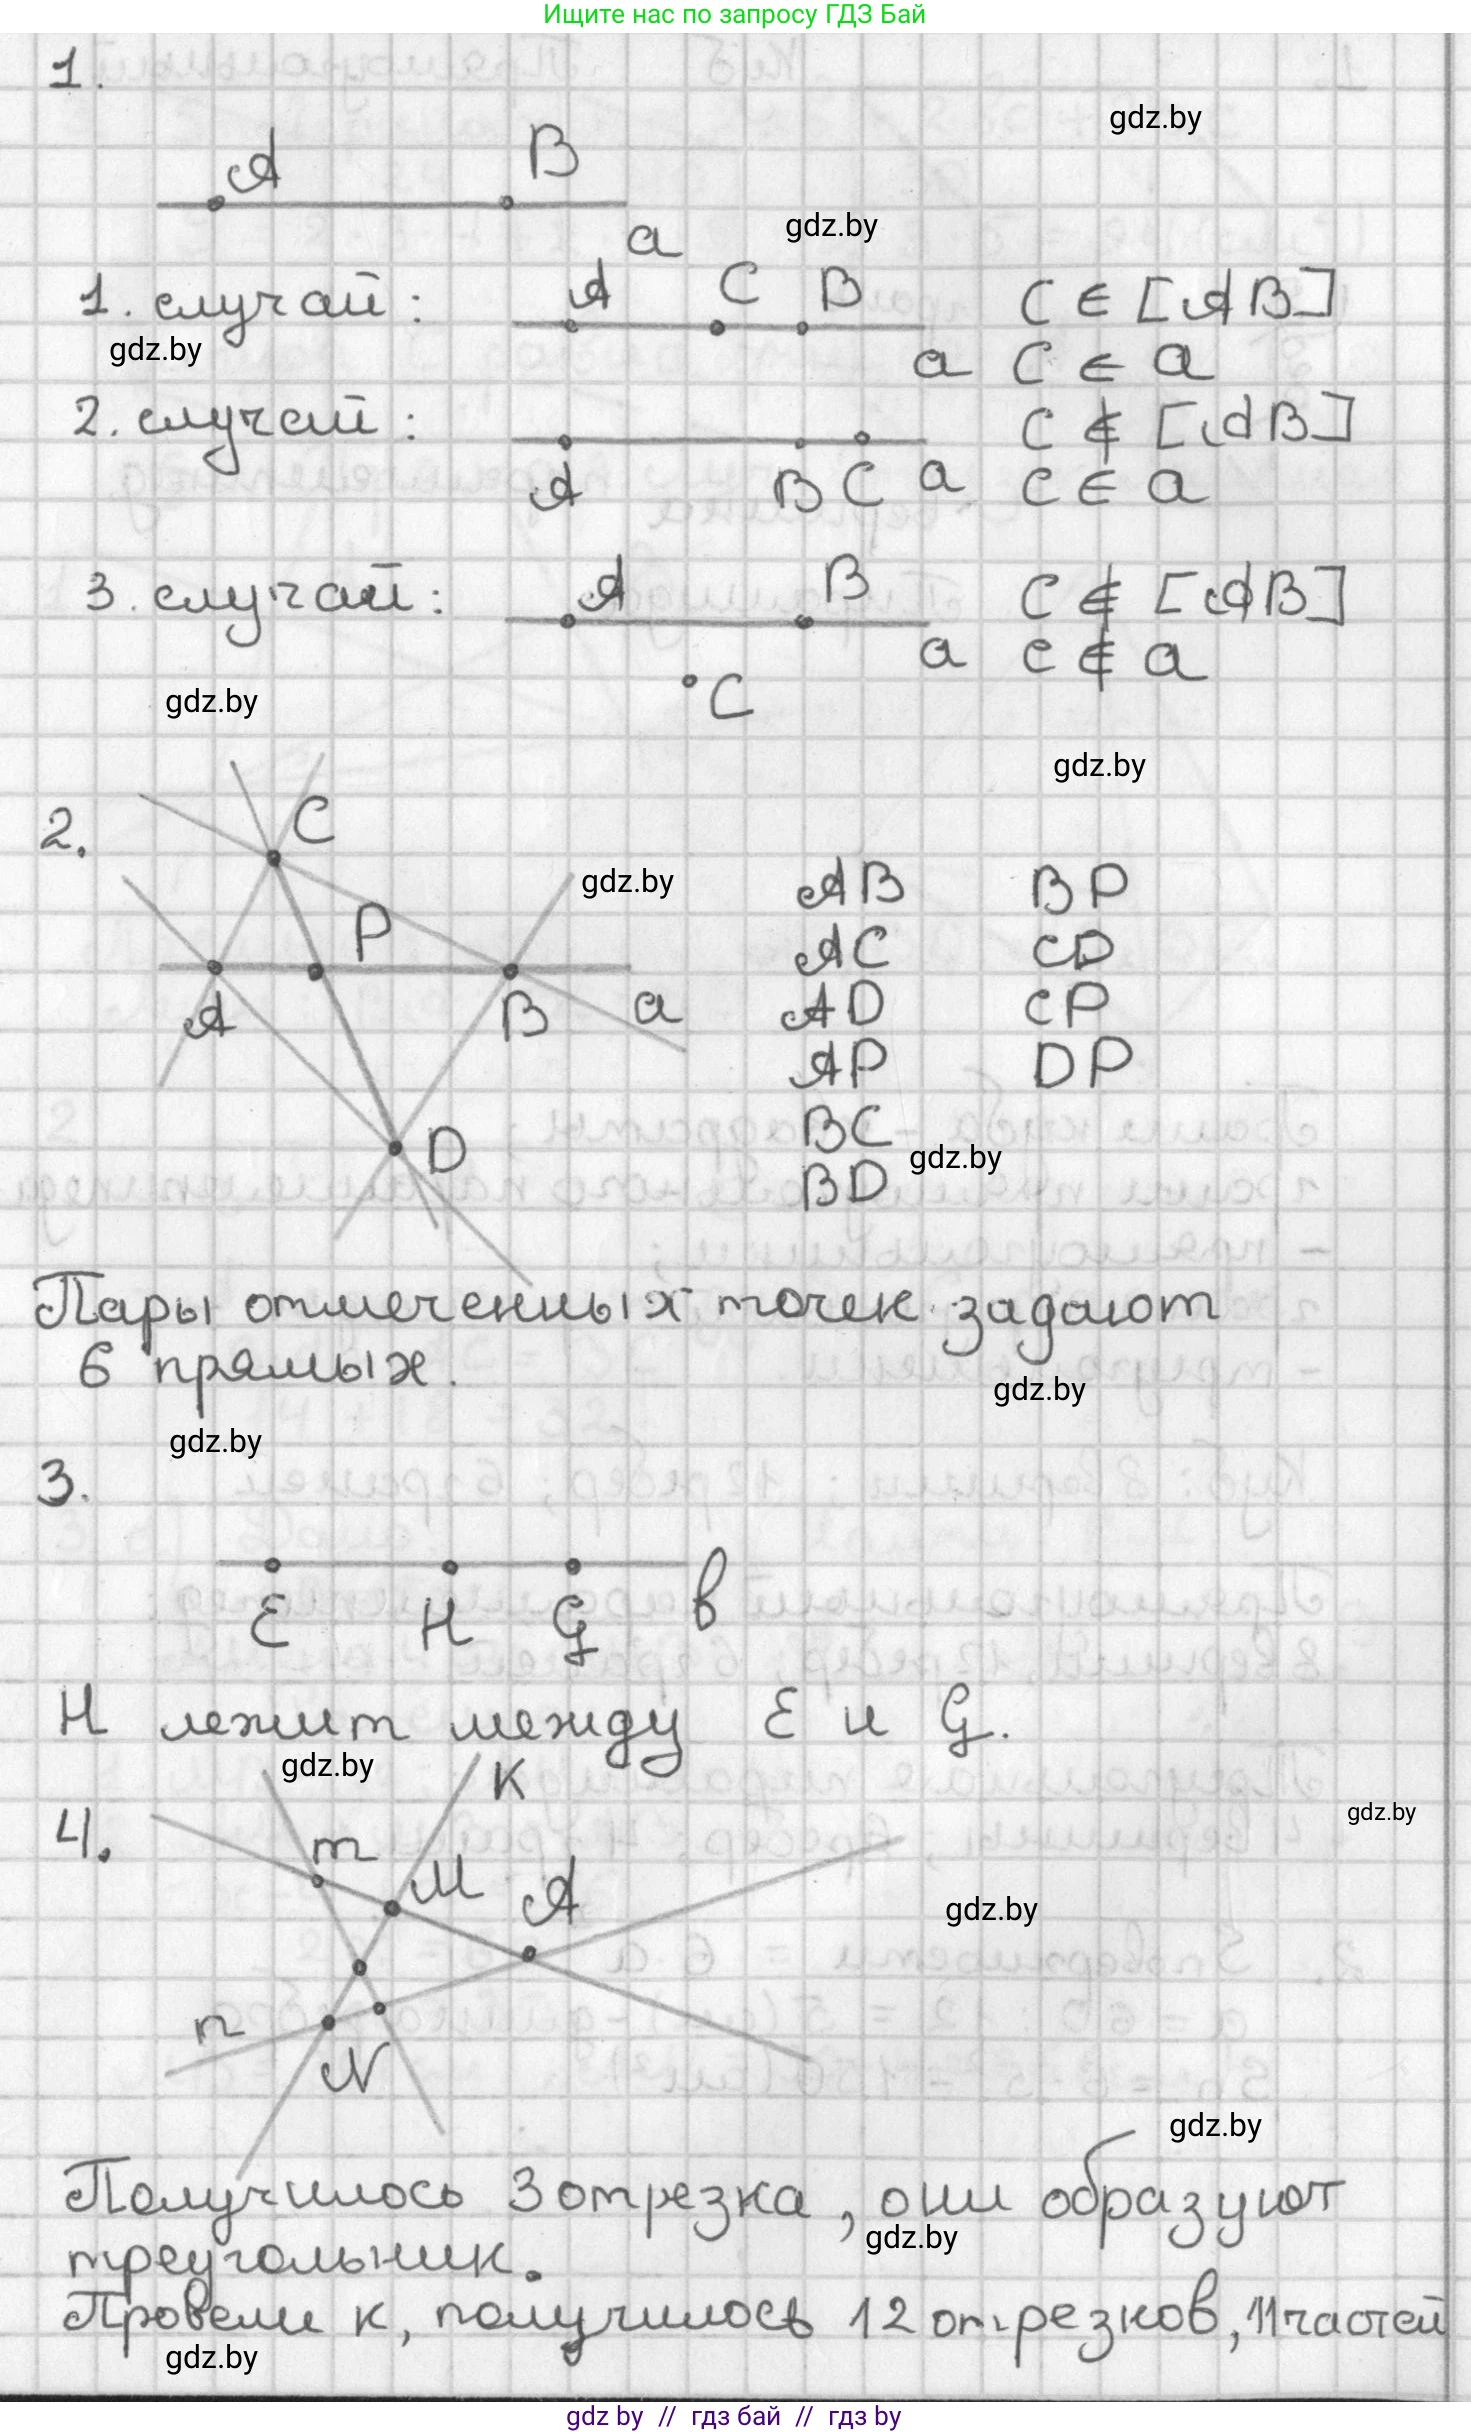 Ищите нас по запросу ГДЗ Бай
1.
gdz.by
A B
a
gdz.by
1. случай: A C B a C ∈ [AB]
gdz.by
C ∈ a
2. случай: A B C a C ∉ [AB]
C ∈ a
3. случай: A B a C ∉ [AB]
C ∉ a
C
gdz.by
gdz.by
2. C
gdz.by
P
A B a
D
AB BP
AC CD
AD CP
AP DP
BC
gdz.by
BD
Пары отмеченных точек задают
6 прямых.
gdz.by
gdz.by
3.
E H G b
H лежит между E и G.
gdz.by
K
4. m M A
gdz.by
gdz.by
n
N
gdz.by
Получилось 3 отрезка, они образуют
gdz.by
треугольник.
Провели к, получилось 12 отрезков, 11 частей
gdz.by
gdz by // гдз бай // гдз by